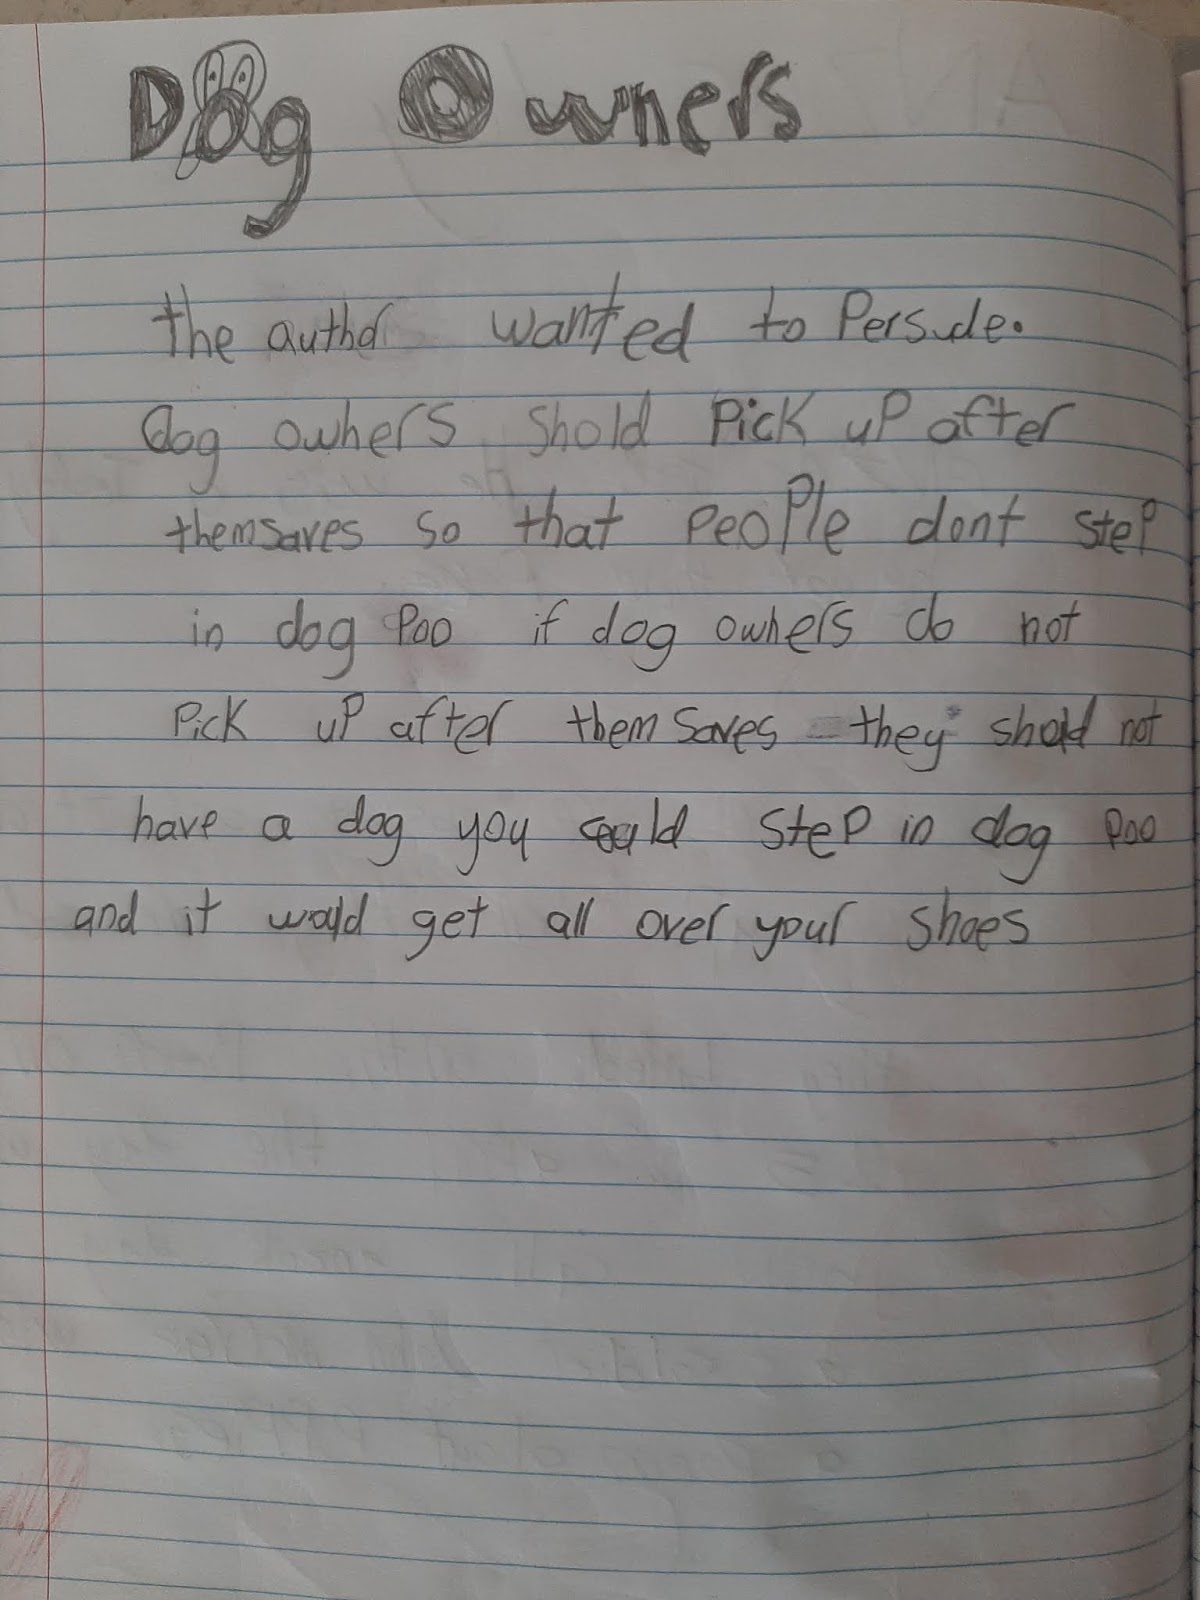 Dog Owners
the author wanted to Persude.
dog owners shold Pick uP after
themsaves so that PeoPle dont SteP
in dog Poo if dog owners do not
Pick uP after themsaves they shold not
have a dog you could SteP in dog Poo
and it would get all over your Shoes